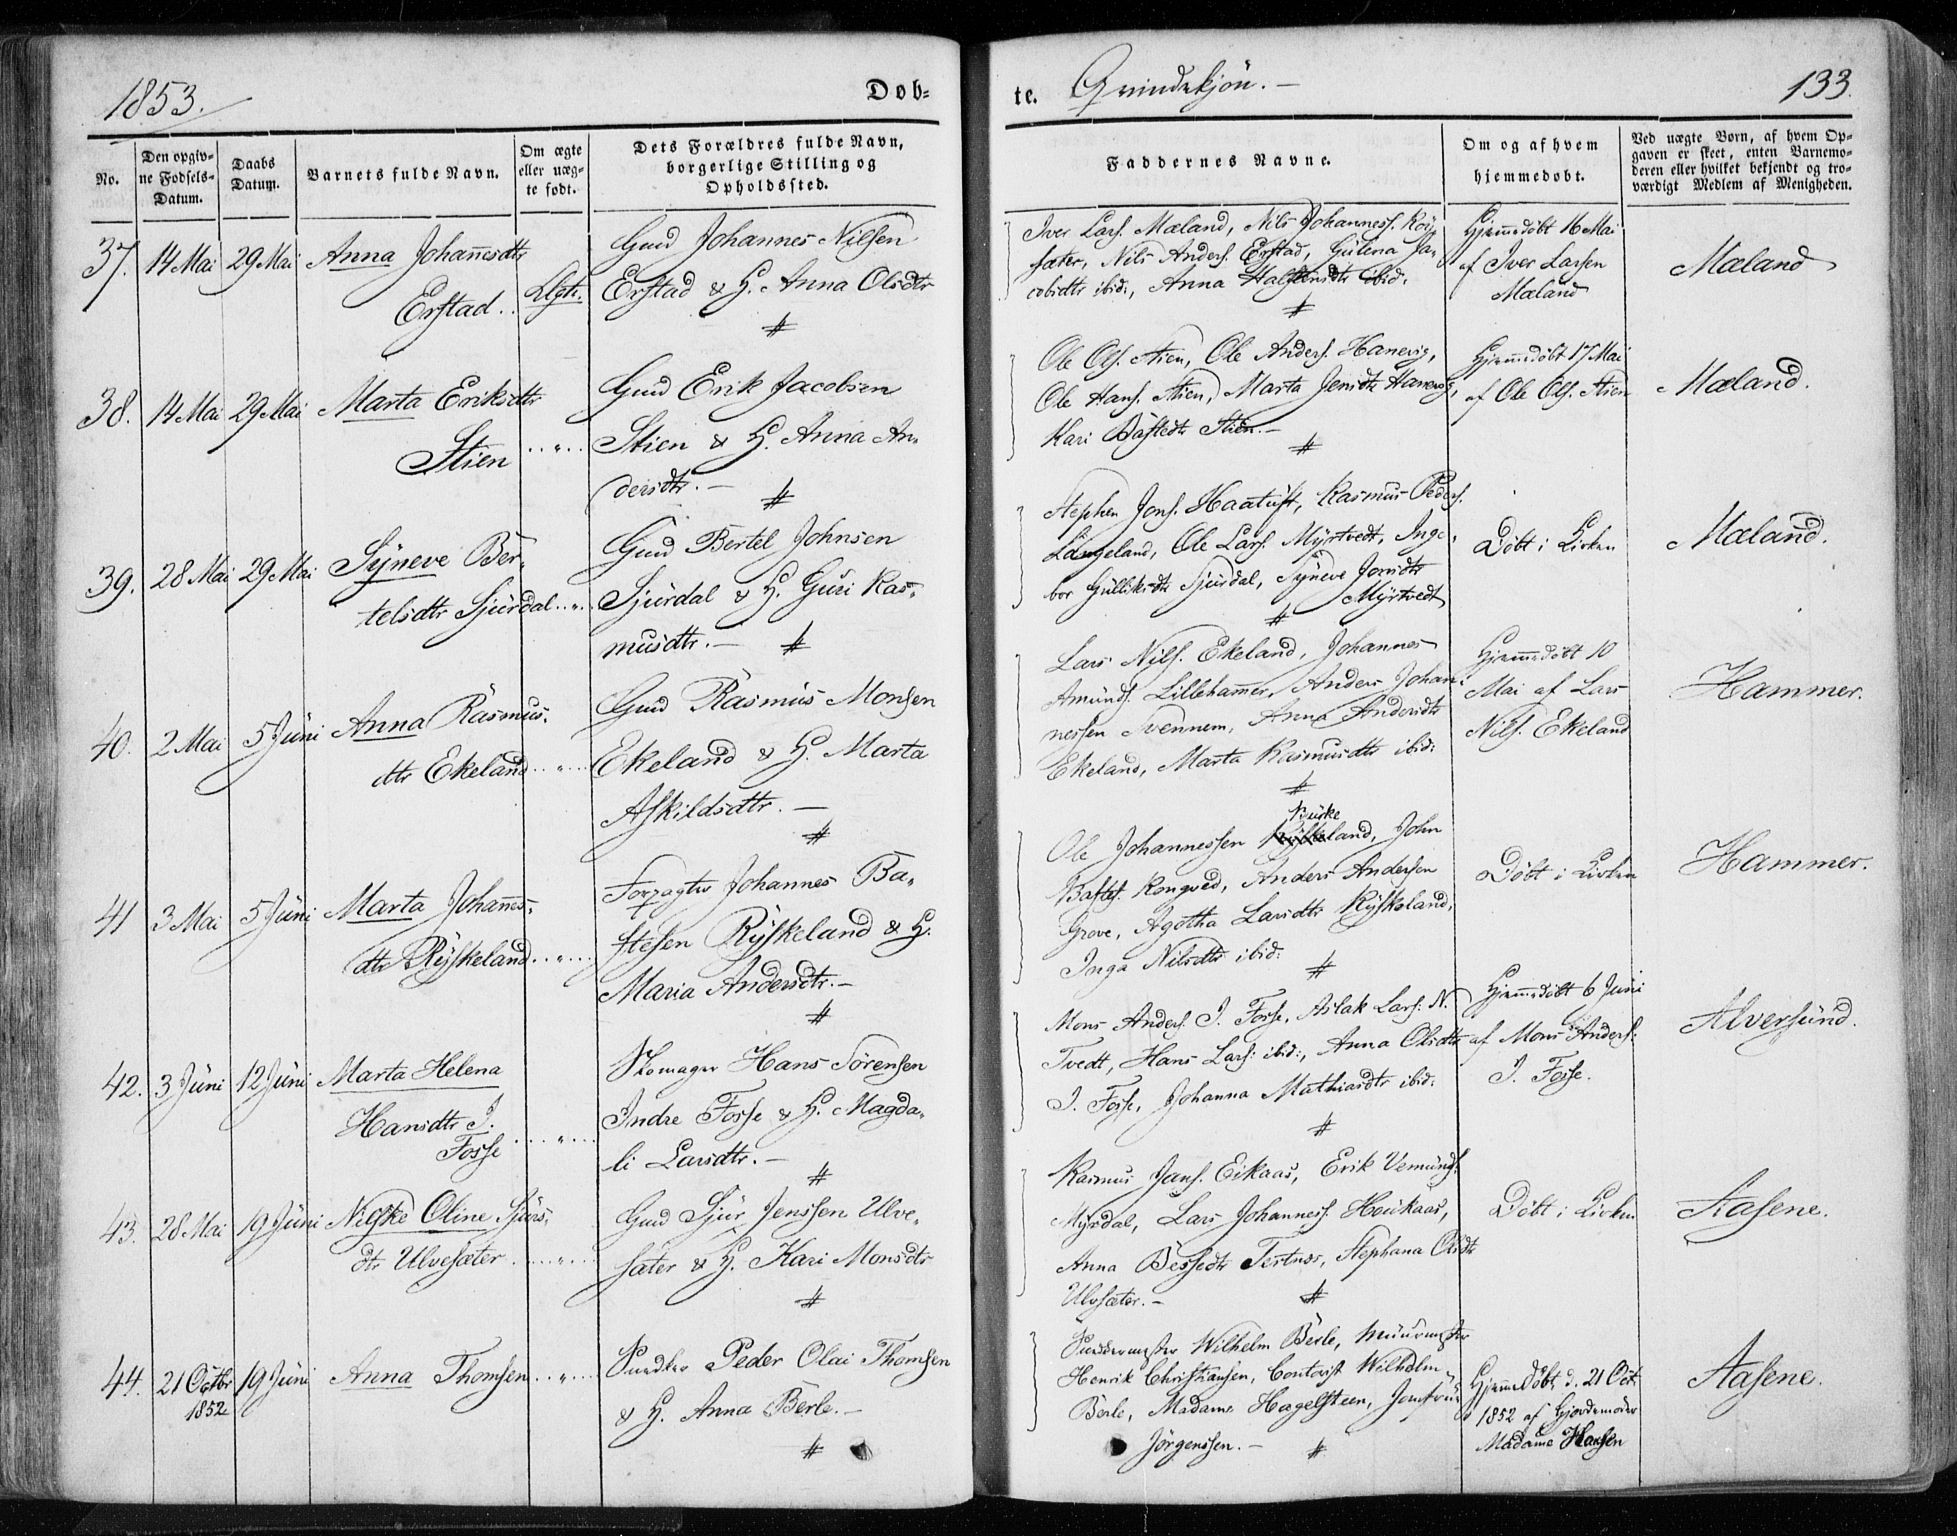 1853.
Døb-
te.
Qvindekjøn. —
133.
No.
Den opgiv-
ne Fødsels-
Datum.
Daabs
Datum.
Barnets fulde Navn.
Om ægte
eller uæg-
te født.
Dets Forældres fulde Navn,
borgerlige Stilling og
Opholdssted.
Faddernes Navne.
Om og af hvem
hjemmedøbt.
Ved uægte Børn, af hvem Op-
gaven er skeet, enten Barnemo-
deren eller hvilket bekjendt og tro-
værdigt Medlem af Menigheden.
37. 14 Mai 29 Mai Anna Johannesdtr
Erstad
Gmd Johannes Nilsen
Erstad & H. Anna Olsdtr
Iver Lars. Mæland, Nils Johanness. Röi-
sæter, Nils Anders. Erstad, Gülena Ja-
cobsdtr ibid:, Anna Halstensdtr ibid.
Hjemmedöbt 16 Mai
af Iver Larsen
Mæland
Mæland
38. 14 Mai 29 Mai Marta Eriksdtr
Stien
Gmd Erik Jacobsen
Stien & H. Anna An-
dersdtr. —
Ole Ols. Stien, Ole Anders. Hanevig,
Ole Hans. Stien, Marta Jensdtr Hanevig,
Kari Bastedtr Stien. —
Hjemmedöbt 17 Mai
af Ole Ols. Stien
Mæland.
39. 28 Mai 29 Mai Syneve Ber-
telsdtr Sjürdal
Gmd Bertel Johnsen
Sjürdal & H. Guri Ras-
musdtr. —
Stephen Jons. Haatuft, Rasmus Peders.
Langeland, Ole Lars. Myrtvedt, Inge-
bor Gülliksdtr Sjürdal, Syneve Jonsdtr
Myrtvedt
Döbt i Kirken
Mæland.
40. 2 Mai 5 Jüni Anna Rasmus-
dtr Ekeland
Gmd Rasmus Monsen
Ekeland & H. Marta
Askildsdtr. —
Lars Nils. Ekeland, Johannes
Amünds. Lillehammer, Anders Johan-
nessen Svennem, Anna Andersdtr
Ekeland, Marta Rasmusdtr ibid:
Hjemmedöbt 10
Mai af Lars
Nils. Ekeland
Hammer.
41 3 Mai 5 Jüni Marta Johannes-
dtr Rÿskeland
Forpagter Johannes Ba-
stesen Rÿskeland & H.
Maria Andersdtr. —
Birke
Ole Johannessen land, John
Basts. Rongved, Anders Andersen
Grove, Agotha Larsdtr Rÿskeland,
Inga Nilsdtr ibid:
Döbt i Kirken
Hammer.
42. 3 Jüni 12 Jüni Marta Helena
Hansdtr I.
Fosse
Skomager Hans Sörensen
Indre Fosse & H. Magda-
li Larsdtr. —
Mons Anders. I. Fosse, Aslak Lars. N.
Tvedt, Hans Lars: ibid:, Anna Olsdtr
I. Fosse, Johanna Mathiasdtr ibid:
Hjemmedöbt 6 Jüni
af Mons Anders:
I. Fosse.
Alversünd.
43. 28 Mai 19 Jüni Nilske Oline Sjürs-
dtr Ulvesæter
Gmd Sjür Jenssen Ulve-
sæter & H. Kari Monsdtr
Rasmus Jans. Eikaas, Erik Vemünds.
Myrdal, Lars Johanness. Höükaas,
Anna Bessedtr Tertnæs, Stephana Olsdtr
Ulvsæter. —
Döbt i Kirken
Aasene.
44. 21 Octbr 19 Jüni Anna Thomsen
1852
Snedker Peder Olai Thomsen
& H. Anna Berle. —
Snedkermester Wilhelm Berle, Müürmester
Henrik Christiansen, Contorist Wilhelm
Berle, Madame Hagelsteen, Jomfrü
Jörgenssen. —
Hjemmedöbt d. 21 Oct.
1852 af Gjordemoder
Madame Hansen
Aasene.